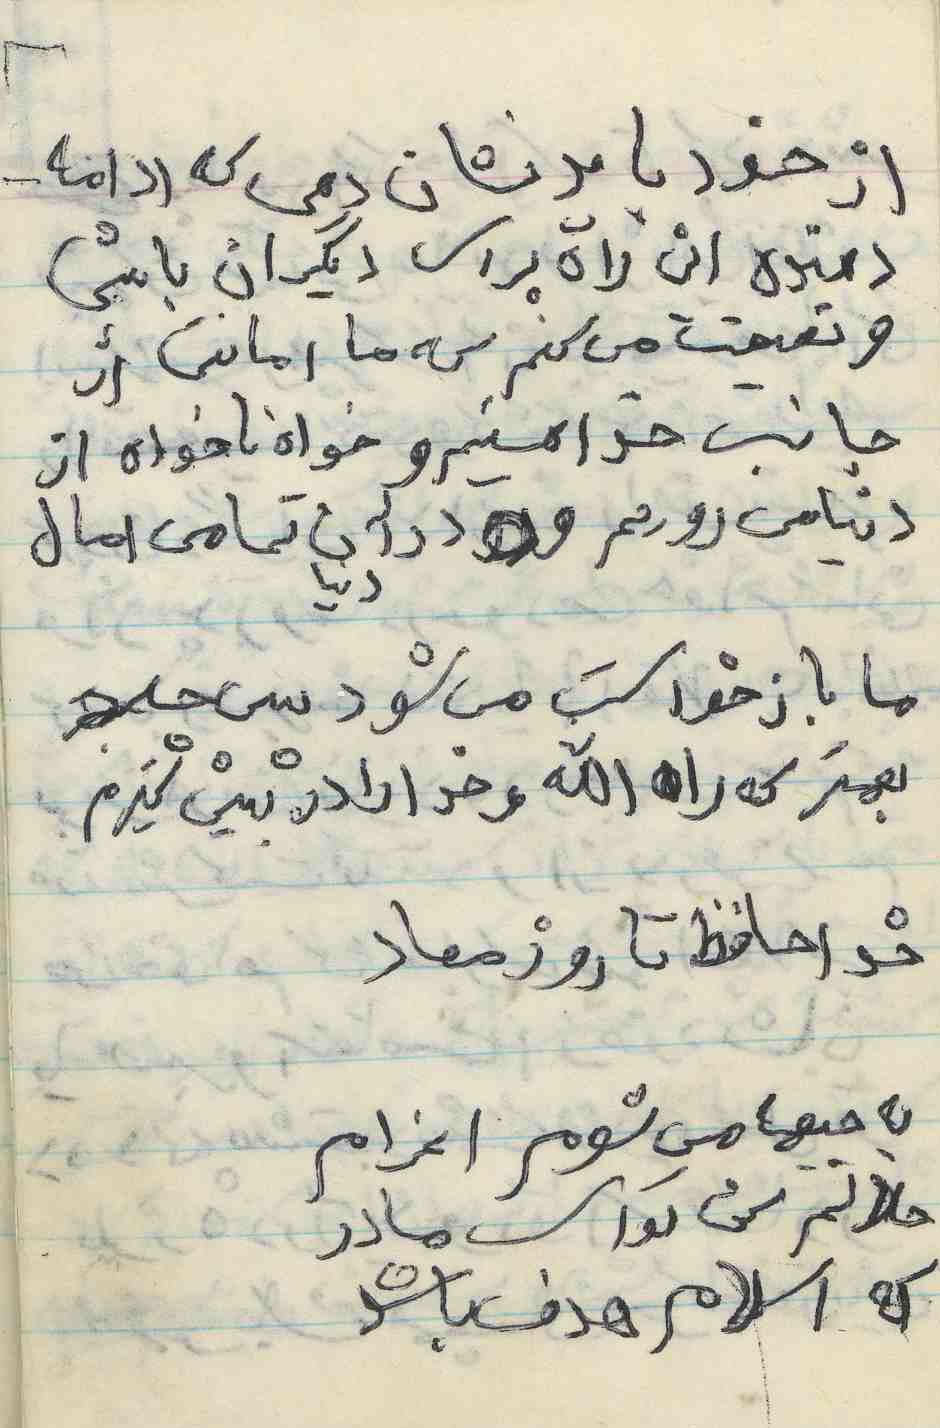 از خود باید نشان دهی که ادامه
دهنده این راه برای دیگران باشی
و نصیحت می کنم که ما امانتی از
جانب خدا هستیم و خواه ناخواه از
دنیا می رویم و در این تمامی امال
دنیا
ما باز خواست می شود پس چه
بهتر که راه الله و خدا را در پیش گیریم
خدا حافظ تا روز معاد
به جبهه می شوم اعزام
حلالم کن تو ای مادر
که اسلام هدف باشد